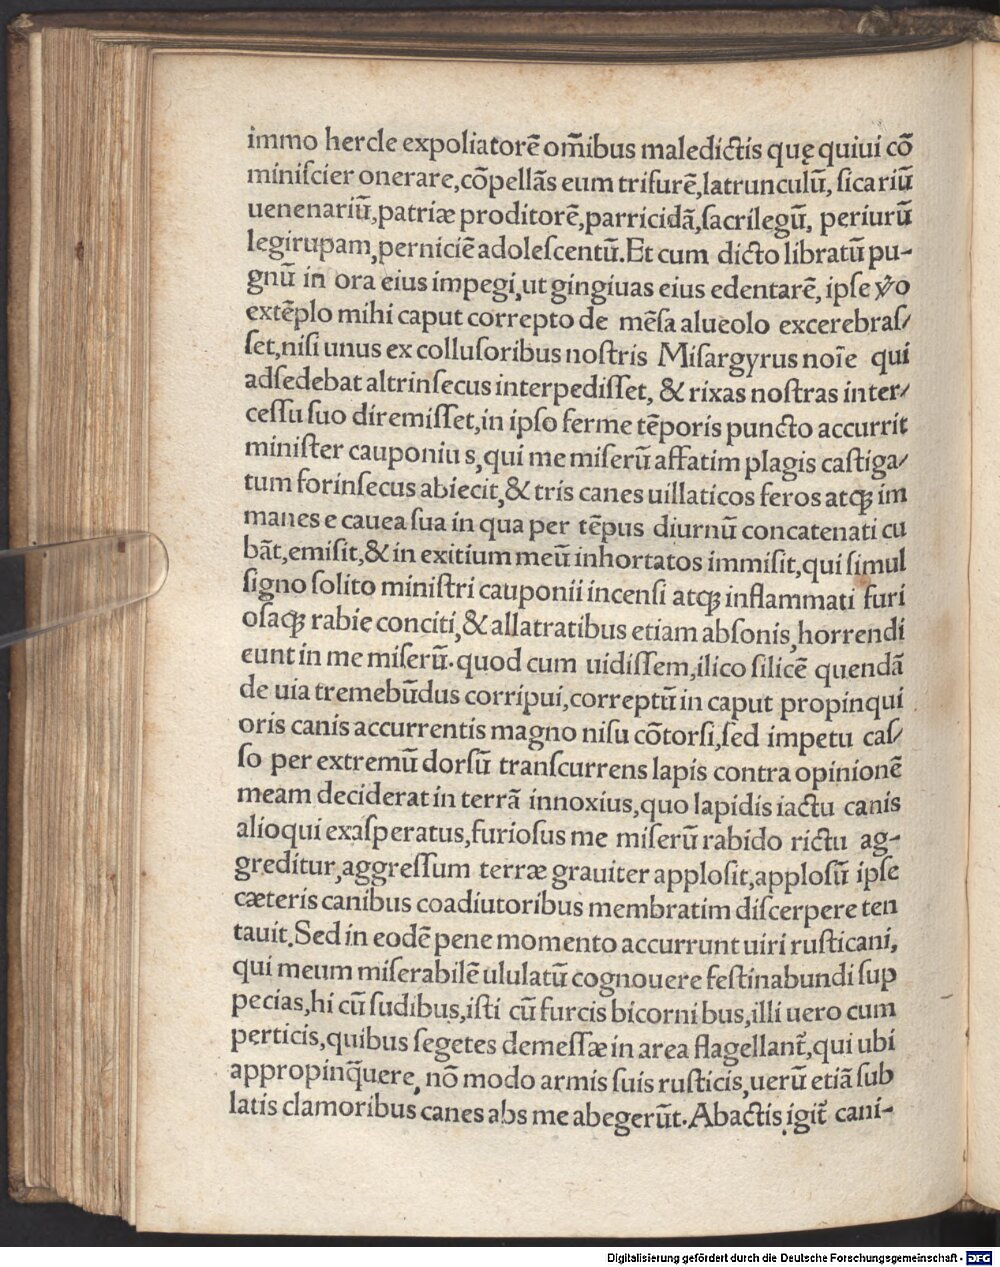 immo hercle expoliatorē om̄ibus maledictis quę quiui cō
miniſcier onerare,cōpellās eum trifurē,latrunculū, ſicariū
uenenariū,patriæ proditorē,parricidā,ſacrilegū, periurū
legirupam,perniciē adoleſcentū.Et cum dicto libratū pu-
gnū in ora eius impegi,ut gingiuas eius edentarē, ipſe ꝟo
extēplo mihi caput correpto de mēſa alueolo excerebraſ/
ſet,niſi unus ex colluſoribus noſtris Miſargyrus noīe qui
adſedebat altrinſecus interpediſſet, & rixas noſtras inter/
ceſſu ſuo diremiſſet,in ipſo ferme tēporis puncto accurrit
miniſter cauponiu s,qui me miſerū affatim plagis caſtiga/
tum forinſecus abiecit,& tris canes uillaticos feros atqꝫ im
manes e cauea ſua in qua per tēpus diurnū concatenati cu
bāt,emiſit,& in exitium meū inhortatos immiſit,qui ſimul
ſigno ſolito miniſtri cauponii incenſi atqꝫ inflammati furi
oſaqꝫ rabie conciti,& allatratibus etiam abſonis,horrendi
eunt in me miſerū.quod cum uidiſſem,ilico ſilicē quendā
de uia tremebūdus corripui,correptū in caput propinqui
oris canis accurrentis magno niſu cōtorſi,ſed impetu caſ/
ſo per extremū dorſū tranſcurrens lapis contra opinionē
meam deciderat in terrā innoxius,quo lapidis iactu canis
alioqui exaſperatus,furioſus me miſerū rabido rictu ag-
greditur,aggreſſum terræ grauiter applofit,applofū ipſe
cæteris canibus coadiutoribus membratim diſcerpere ten
tauit.Sed in eodē pene momento accurrunt uiri ruſticani,
qui meum miſerabilē ululatū cognouere feſtinabundi ſup
pecias,hi cū ſudibus,iſti cū furcis bicorni bus,illi uero cum
perticis,quibus ſegetes demeſſæ in area flagellant̄,qui ubi
appropinq̄uere, nō modo armis ſuis ruſticis,uerū etiā ſub
latis clamoribus canes abs me abegerūt.Abactis igit̄ cani-
Digitalisierung gefördert durch die Deutsche Forschungsgemeinschaft - DFG